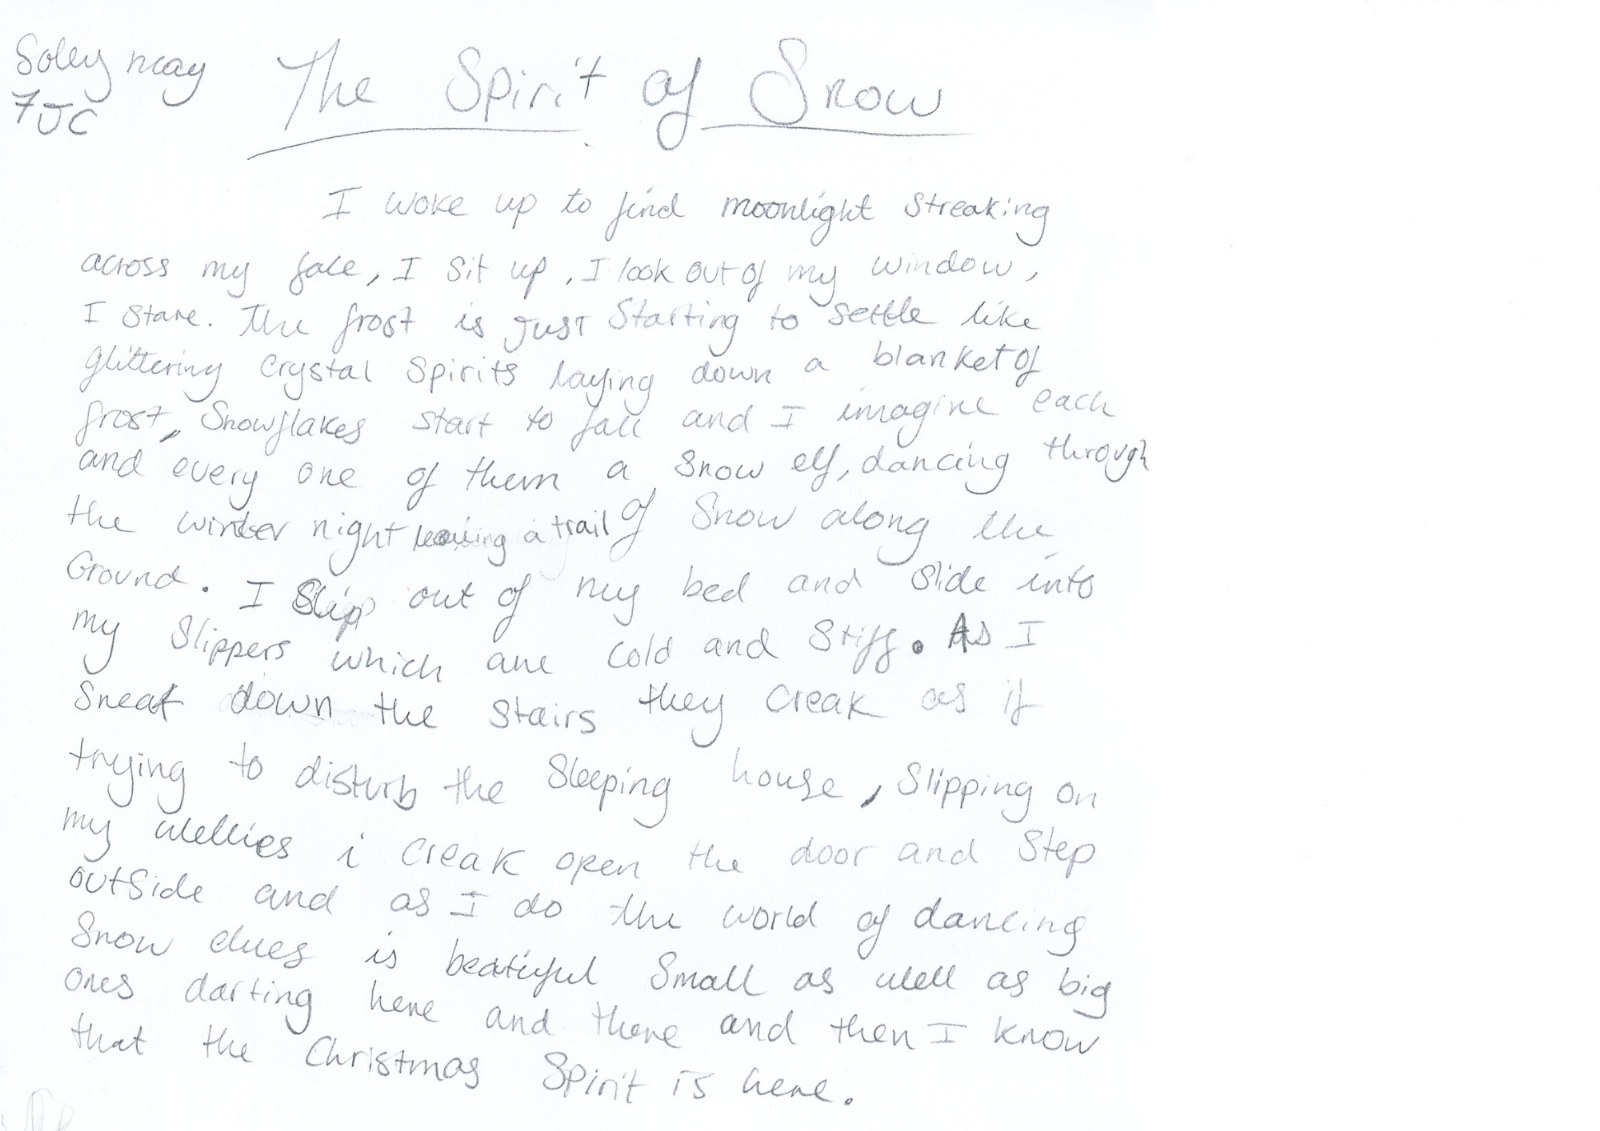 Soley may
7JC
The Spirit of Snow
I woke up to find moonlight streaking
across my face, I sit up, I look out of my window,
I stare. The frost is just starting to settle like
glittering crystal spirits laying down a blanket of
frost, Snowflakes start to fall and I imagine each
and every one of them a snow elf, dancing through
the winter night leaving a trail of snow along the
Ground. I slip out of my bed and slide into
my slippers which are cold and stiff. As I
sneak down the stairs they creak as if
trying to disturb the sleeping house, slipping on
my wellies i creak open the door and step
outside and as I do the world of dancing
snow elves is beatiful small as well as big
ones darting here and there and then I know
that the Christmas Spirit is here.